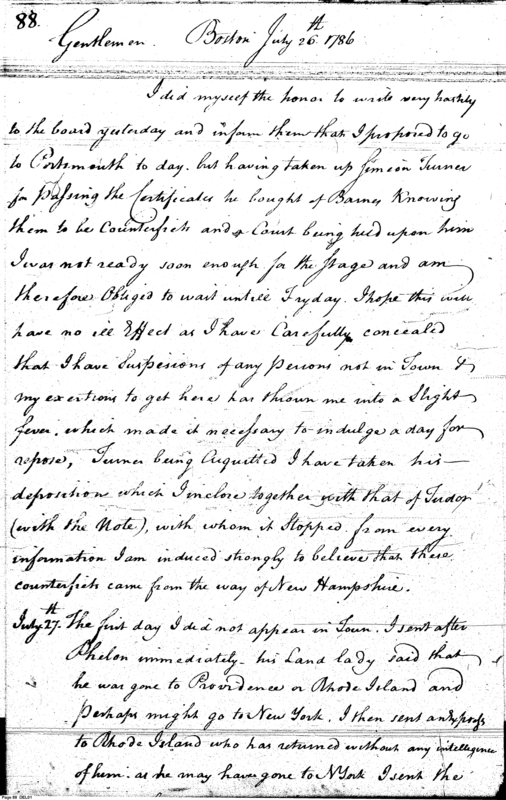 88.
Gentlemen. Boston July 26th 1786
I did myself the honor to write very hastily
to the board yesterday and inform them that I proposed to go
to Portsmouth to day. but having taken up Simeon Turner
for passing the Certificates he bought of Barnes Knowing
them to be Counterfeits and a Court being held upon him
I was not ready soon enough for the Stage and am
therefore Obliged to wait untill Fryday. I hope this will
have no ill Effect as I have Carefully concealed
that I have Suspesions of any Persons not in Town &
my exertions to get here has thrown me into a Slight
fever. which made it necessary to indulge a day for
repose, Turner being Acquitted I have taken his
deposition which I inclose together with that of Tudor
(with the Note), with whom it Stopped, from every
information I am induced strongly to believe that these
counterfeits came from the way of New Hampshire.
July 27th. The first day I did not appear in Town. I sent after
Phelon immediately - his Land lady said that
he was gone to Providence or Rhode Island and
perhaps might go to New York. I then sent an Express
to Rhode Island who has returned without any intelligence
of him. as he may have gone to N York I sent the
Page 88 DEL01